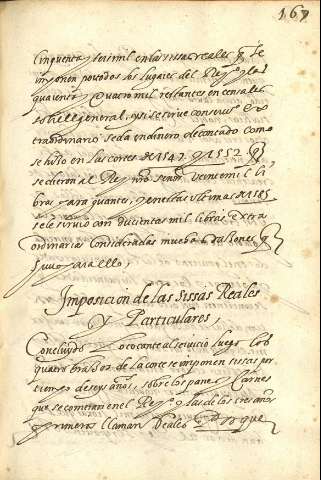 167
Cinquenta y seis mil en las sissas reales q̃ se
imponen por todos los lugares del Reyno y las
quarenta y quatro mil restantes en censales
sobre el general, y si se sirve con servicio ex
traordinario se da en dinero de contado como
se hiço en las cortes de 1547 y 1552 q̃
se dieron al Rey nro señor veinte mil li
bras para guantes, y en estas ultimas de 1585
se le sirvio con ducientas mil libras extra
ordinarias consideradas muchas raçones q̃
huvo para ello,
Imposicion de las sissas Reales
y Particulares
Concluydo lo tocante al servicio luego los
quatro braços de la corte se imponen sissas por
tiempo de seys años, sobre los panes y carnes
que se comen en el Reyno y las de los tres años
primeros llaman Reales Porque